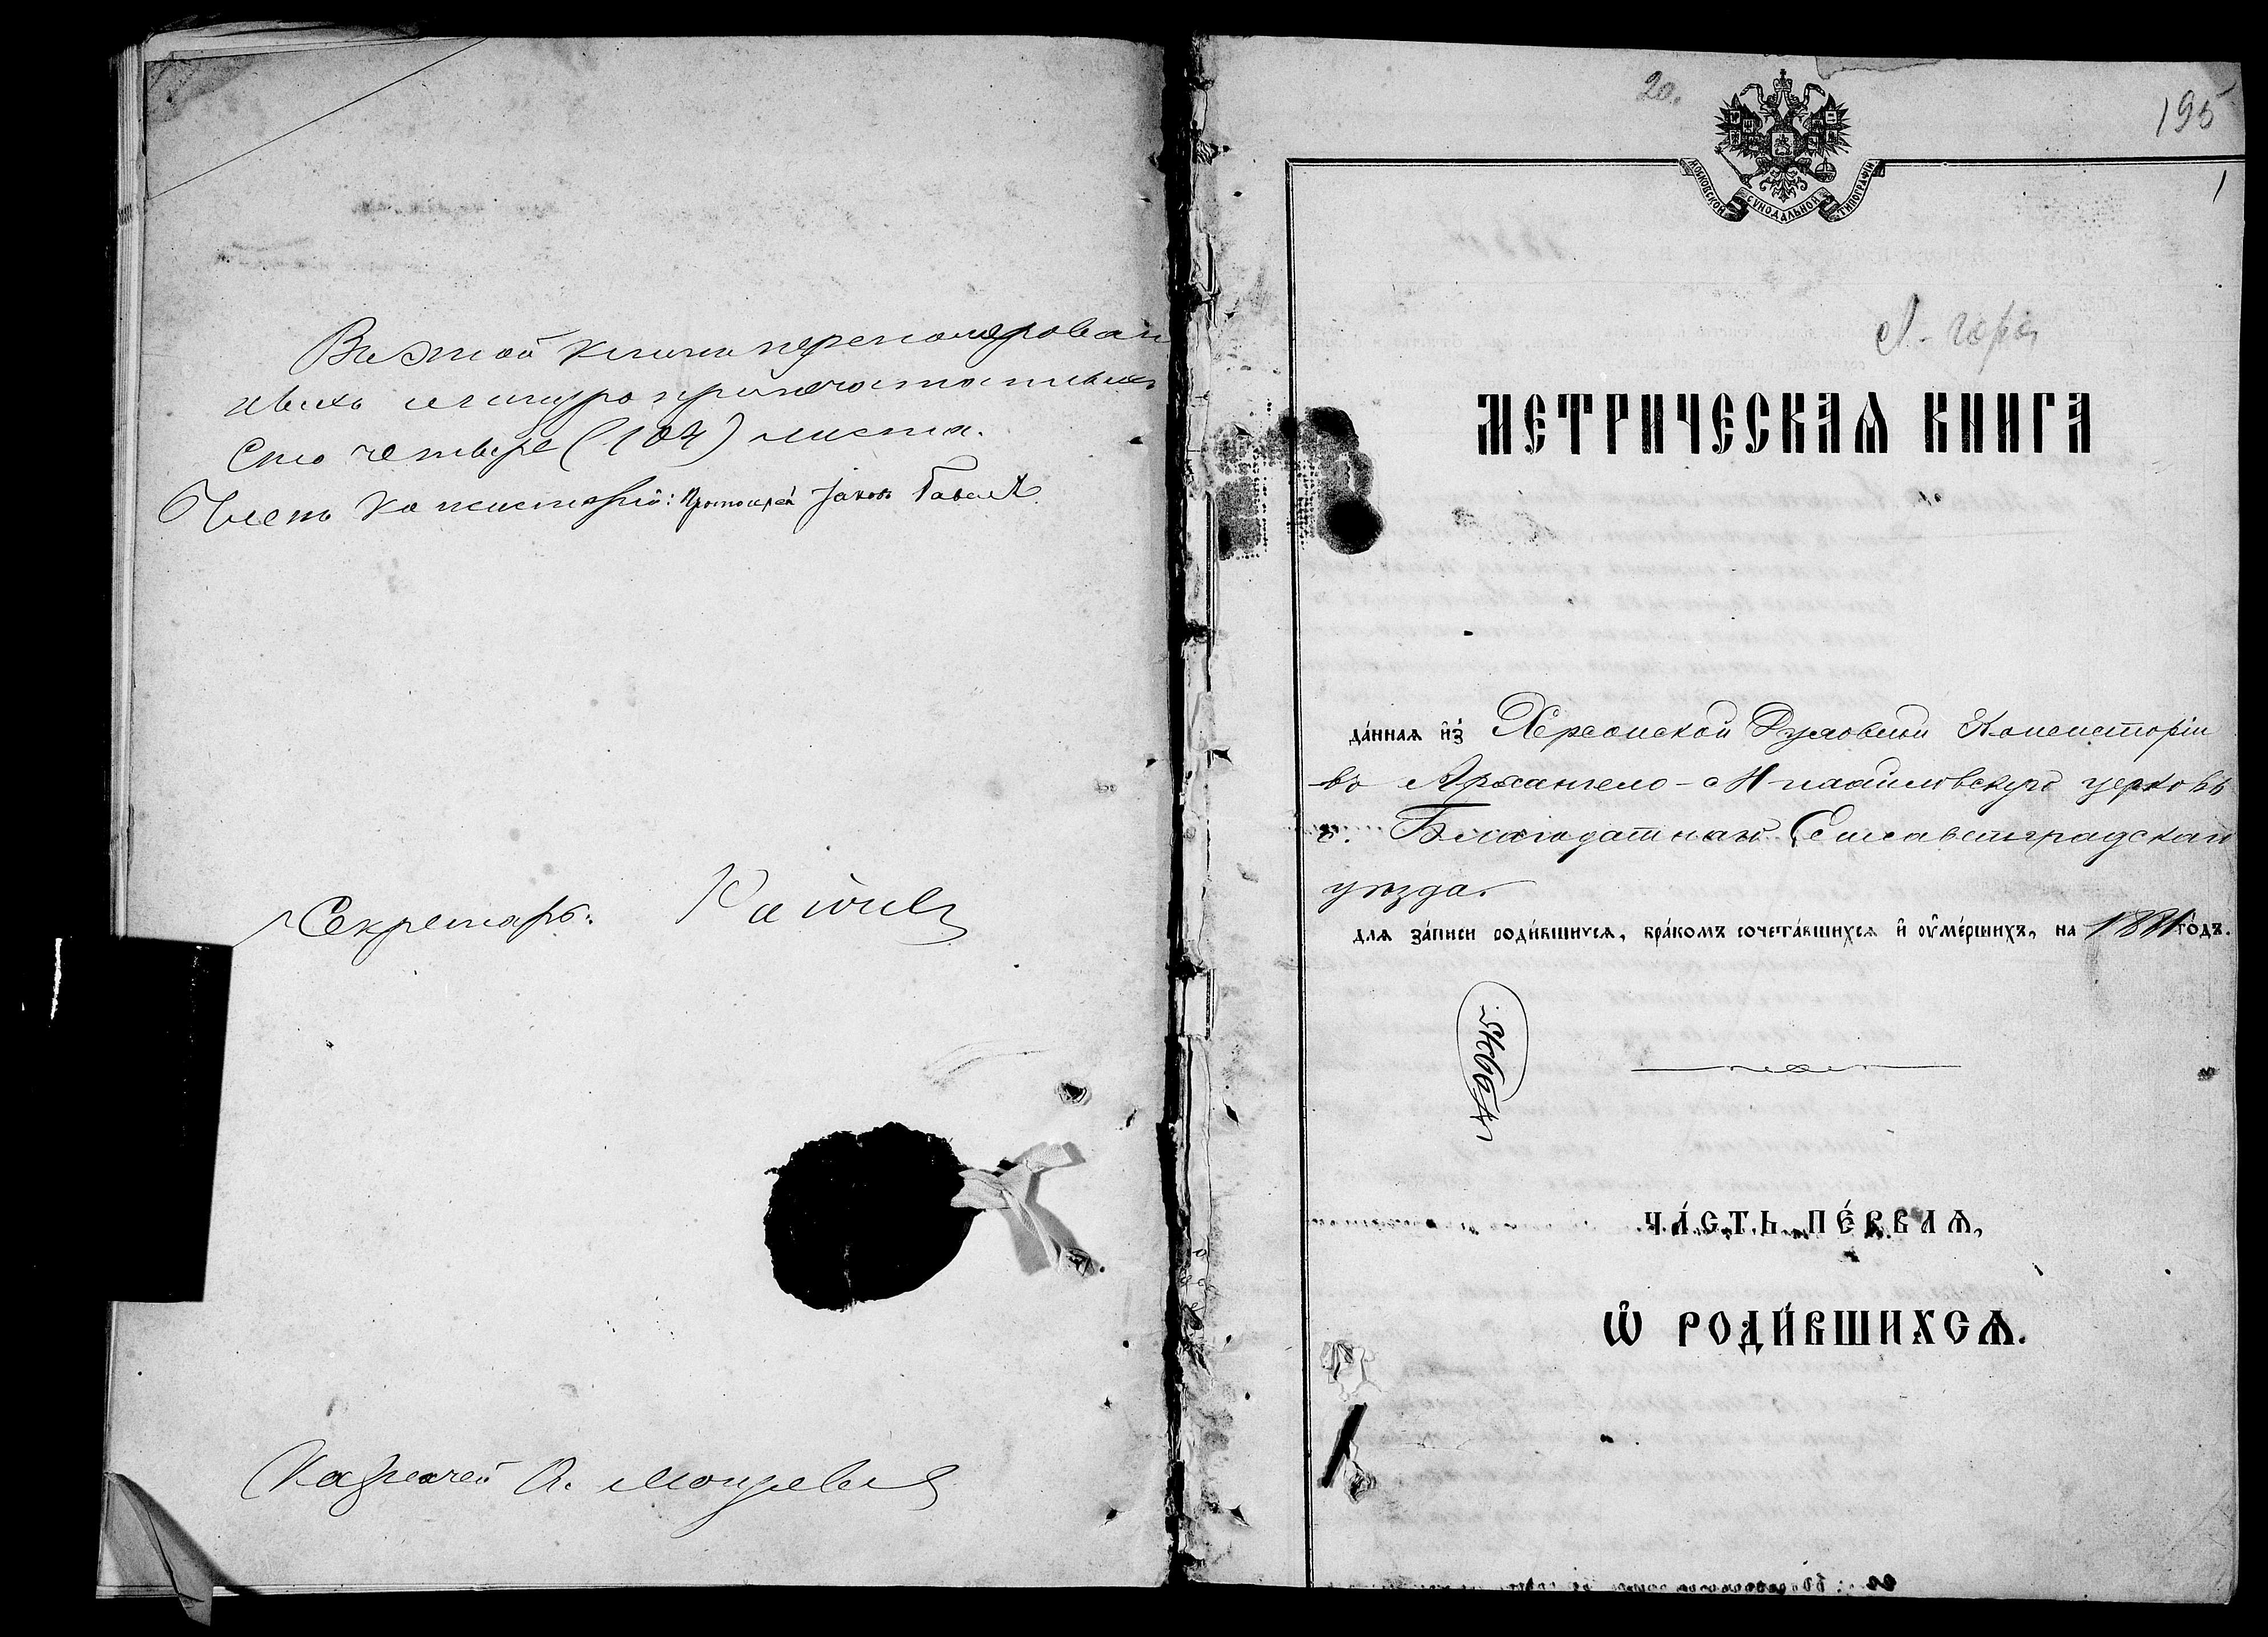 Въ этой книги перенумерован
ныхъ и шнуро припечатанныхъ
Сто четыре (104) листа.
Членъ Консисторіи: Протоіерей Іаковъ
Секретарь:
Казначей
20.
195
1
МОСКОВСКОЙ СѴНОДАЛЬНОЙ ТИПОГРАФІИ
МЕТРИЧЕСКАѦ КНИГА
да́ннаѧ и҆з̾ Херсонской Духовной Консисторіи
въ Архангело-Михайловскую церковь
с. Благодатнаго Елисаветградскаго
уѣзда.
для за́писи роди́вшихсѧ, бра́комъ сочета́вшихсѧ и҆ ᲂу҆ме́ршихъ, на 1881 го́дъ.
ЧА́СТЬ ПЕ́РВАѦ,
Ѽ РОДИ́ВШИХСѦ.